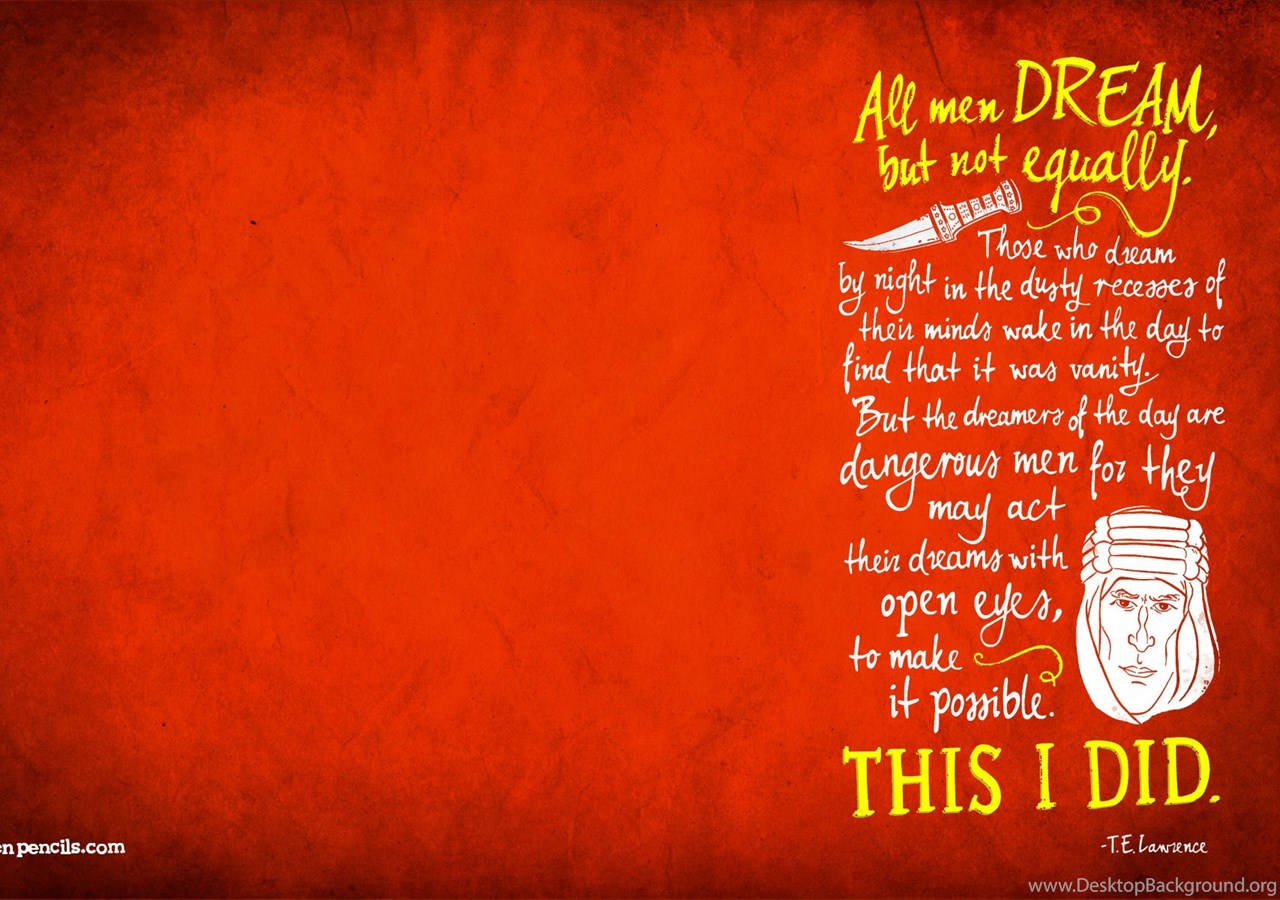 All men DREAM,
but not equally.
Those who dream
by night in the dusty recesses of
their minds wake in the day to
find that it was vanity.
But the dreamers of the day are
dangerous men for they
may act
their dreams with
open eyes,
to make
it possible.
THIS I DID.
-T.E. Lawrence
en pencils.com
www.DesktopBackground.org